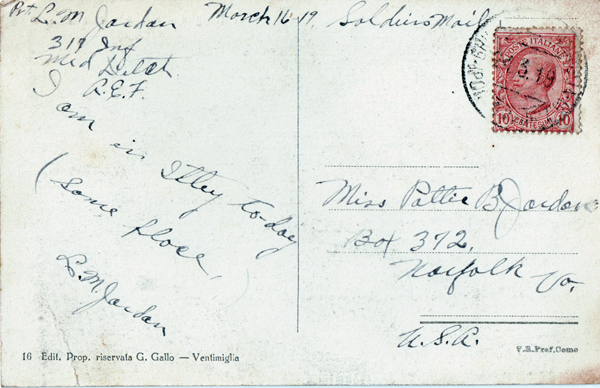 Pvt L. M. Jordan March 16-19. Soldiers Mail
319 Inf
Med Detch
A.E.F.
I am
in Itley today
(some place,)
L. M. Jordan
POSTE ITALIANE
3.19
10 CENTESIMI 10
Miss Pattie B. Jordan
Box 372,
Norfolk Va.
U.S.A.
16 Edit. Prop. riservata G. Gallo — Ventimiglia
F.B.Pref.Como